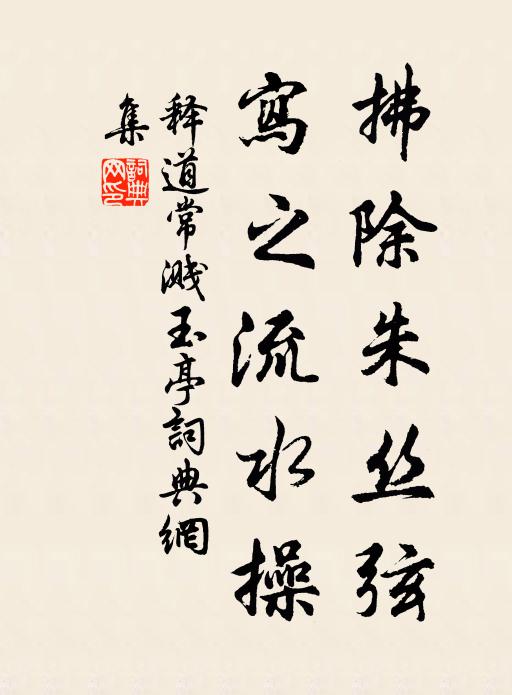 拂除朱丝弦
寫之流水操
释道常溅玉亭詞典網
集
詞典网印